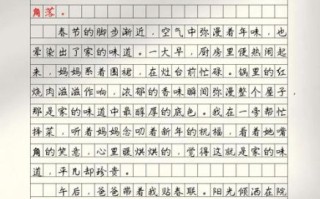 角落。
春节的脚步渐近，空气中弥漫着年味，也
晕染出了家的味道。一大早，厨房里便热闹起
来，妈妈系着围裙，在灶台前忙碌。锅里的红
烧肉滋滋作响，浓郁的香味瞬间弥漫整个屋子
那是家的味道中最醇厚的底色。我在一旁帮忙
择菜，听着妈妈念叨着新年的祝福，看着她嘴
角的笑意，心里暖烘烘的，觉得这就是家的味
道，平凡却珍贵。
午后，爸爸带着我贴春联。阳光倾洒在院